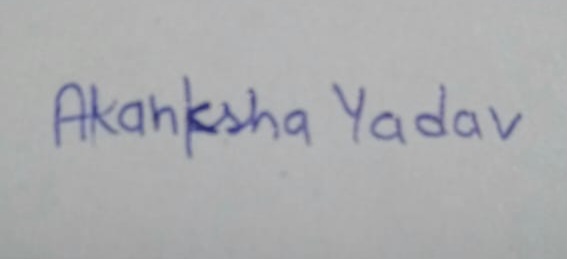 Akanksha Yadav